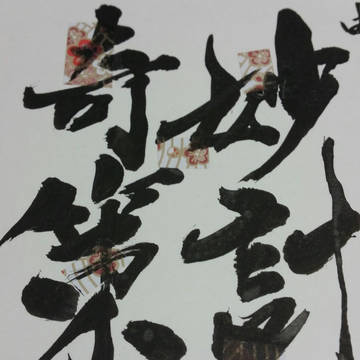 妙計
奇策